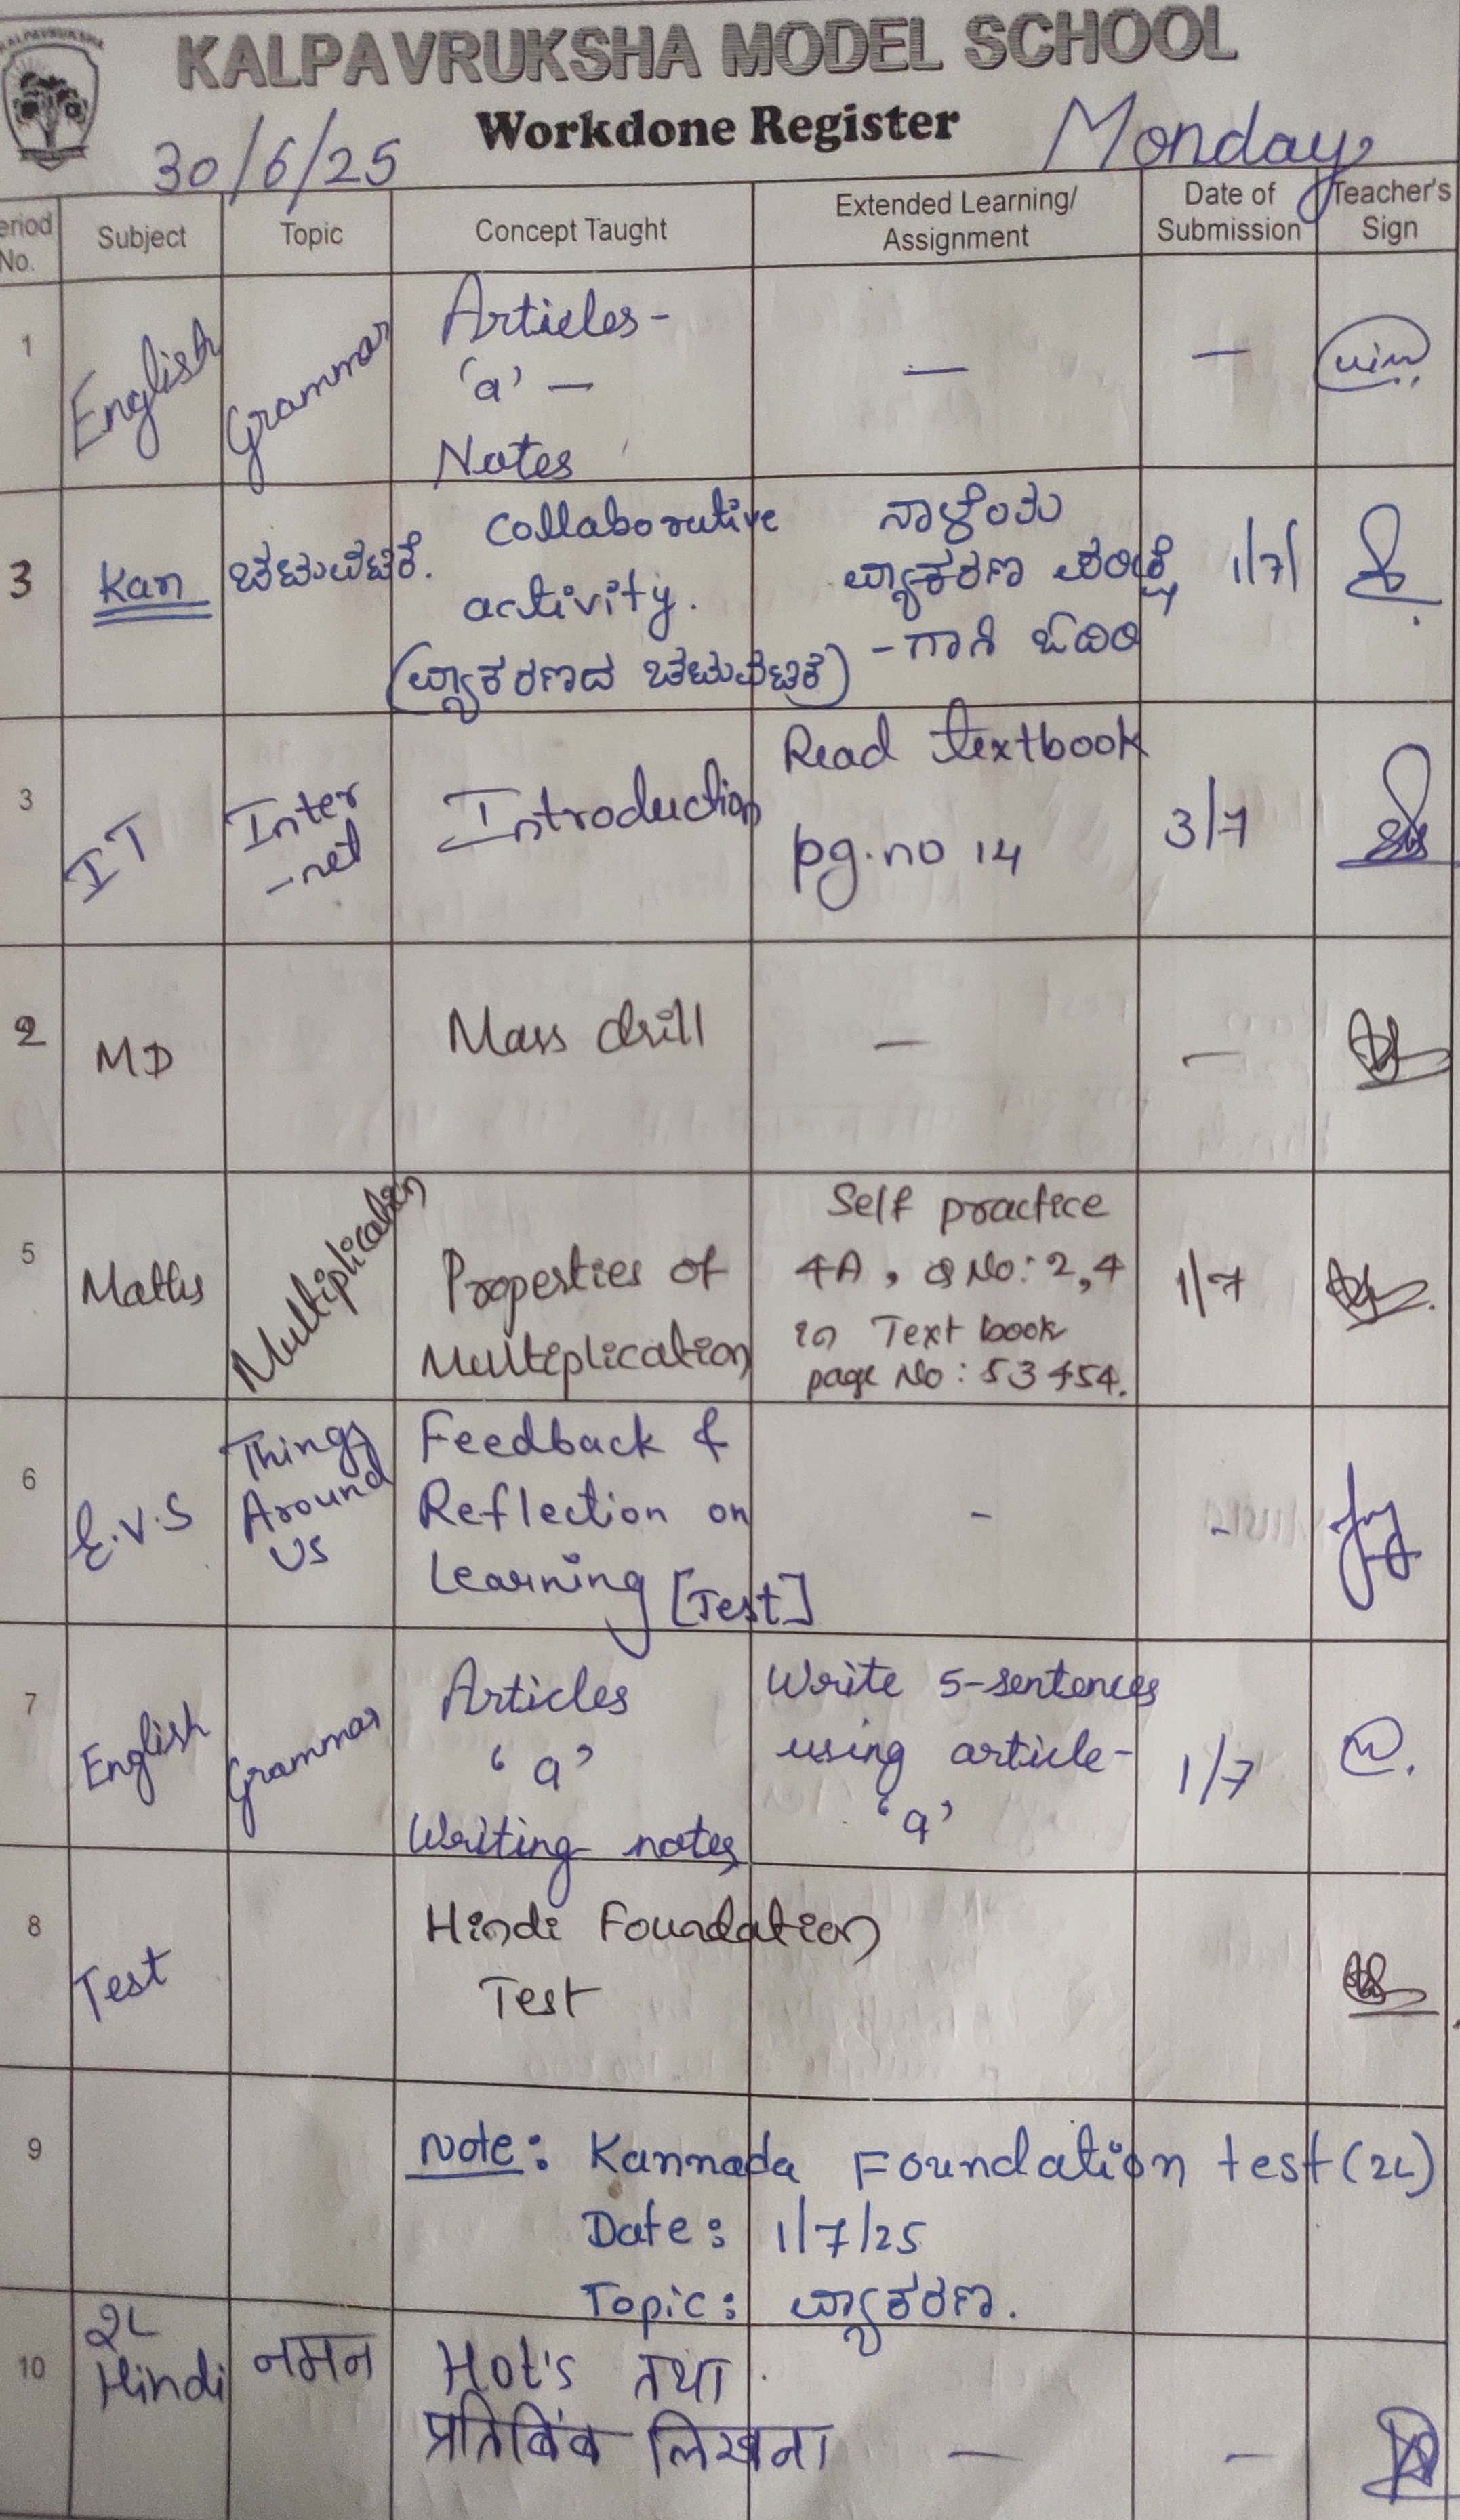 KALPAVRUKSHA
KALPAVRUKSHA MODEL SCHOOL
Workdone Register
30/6/25
Monday
eriod No.
Subject
Topic
Concept Taught
Extended Learning/ Assignment
Date of Submission
Teacher's Sign
1
English
Grammar
Articles-
'a' —
Notes
—
—
3
Kan
ಚಟುವಟಿಕೆ.
Collaborative
activity.
(ವ್ಯಾಕರಣದ ಚಟುವಟಿಕೆ)
ವ್ಯಾಕರಣ
-ಗಾಗಿ ಓದಿರಿ
1/7/
3
IT
Inter
-net
Introduction
Read textbook
pg.no 14
3/7
2
MD
Mass drill
—
—
5
Maths
Multiplication
Properties of
Multiplication
Self practice
4A, Q No: 2,4
in Text book
page No: 53 &54.
1/7
6
E.V.S
Things
Around
us
Feedback &
Reflection on
Learning [Test]
-
-
7
English
Grammar
Articles
'a'
Writing notes
Write 5-sentences
using article-
'a'
1/7
8
Test
Hindi Foundation
Test
9
Note: Kannada Foundation test (2L)
Date: 1/7/25
Topic: ವ್ಯಾಕರಣ.
10
2L
Hindi
नमन
Hot's तथा
प्रतिबिंब लिखना
—
—